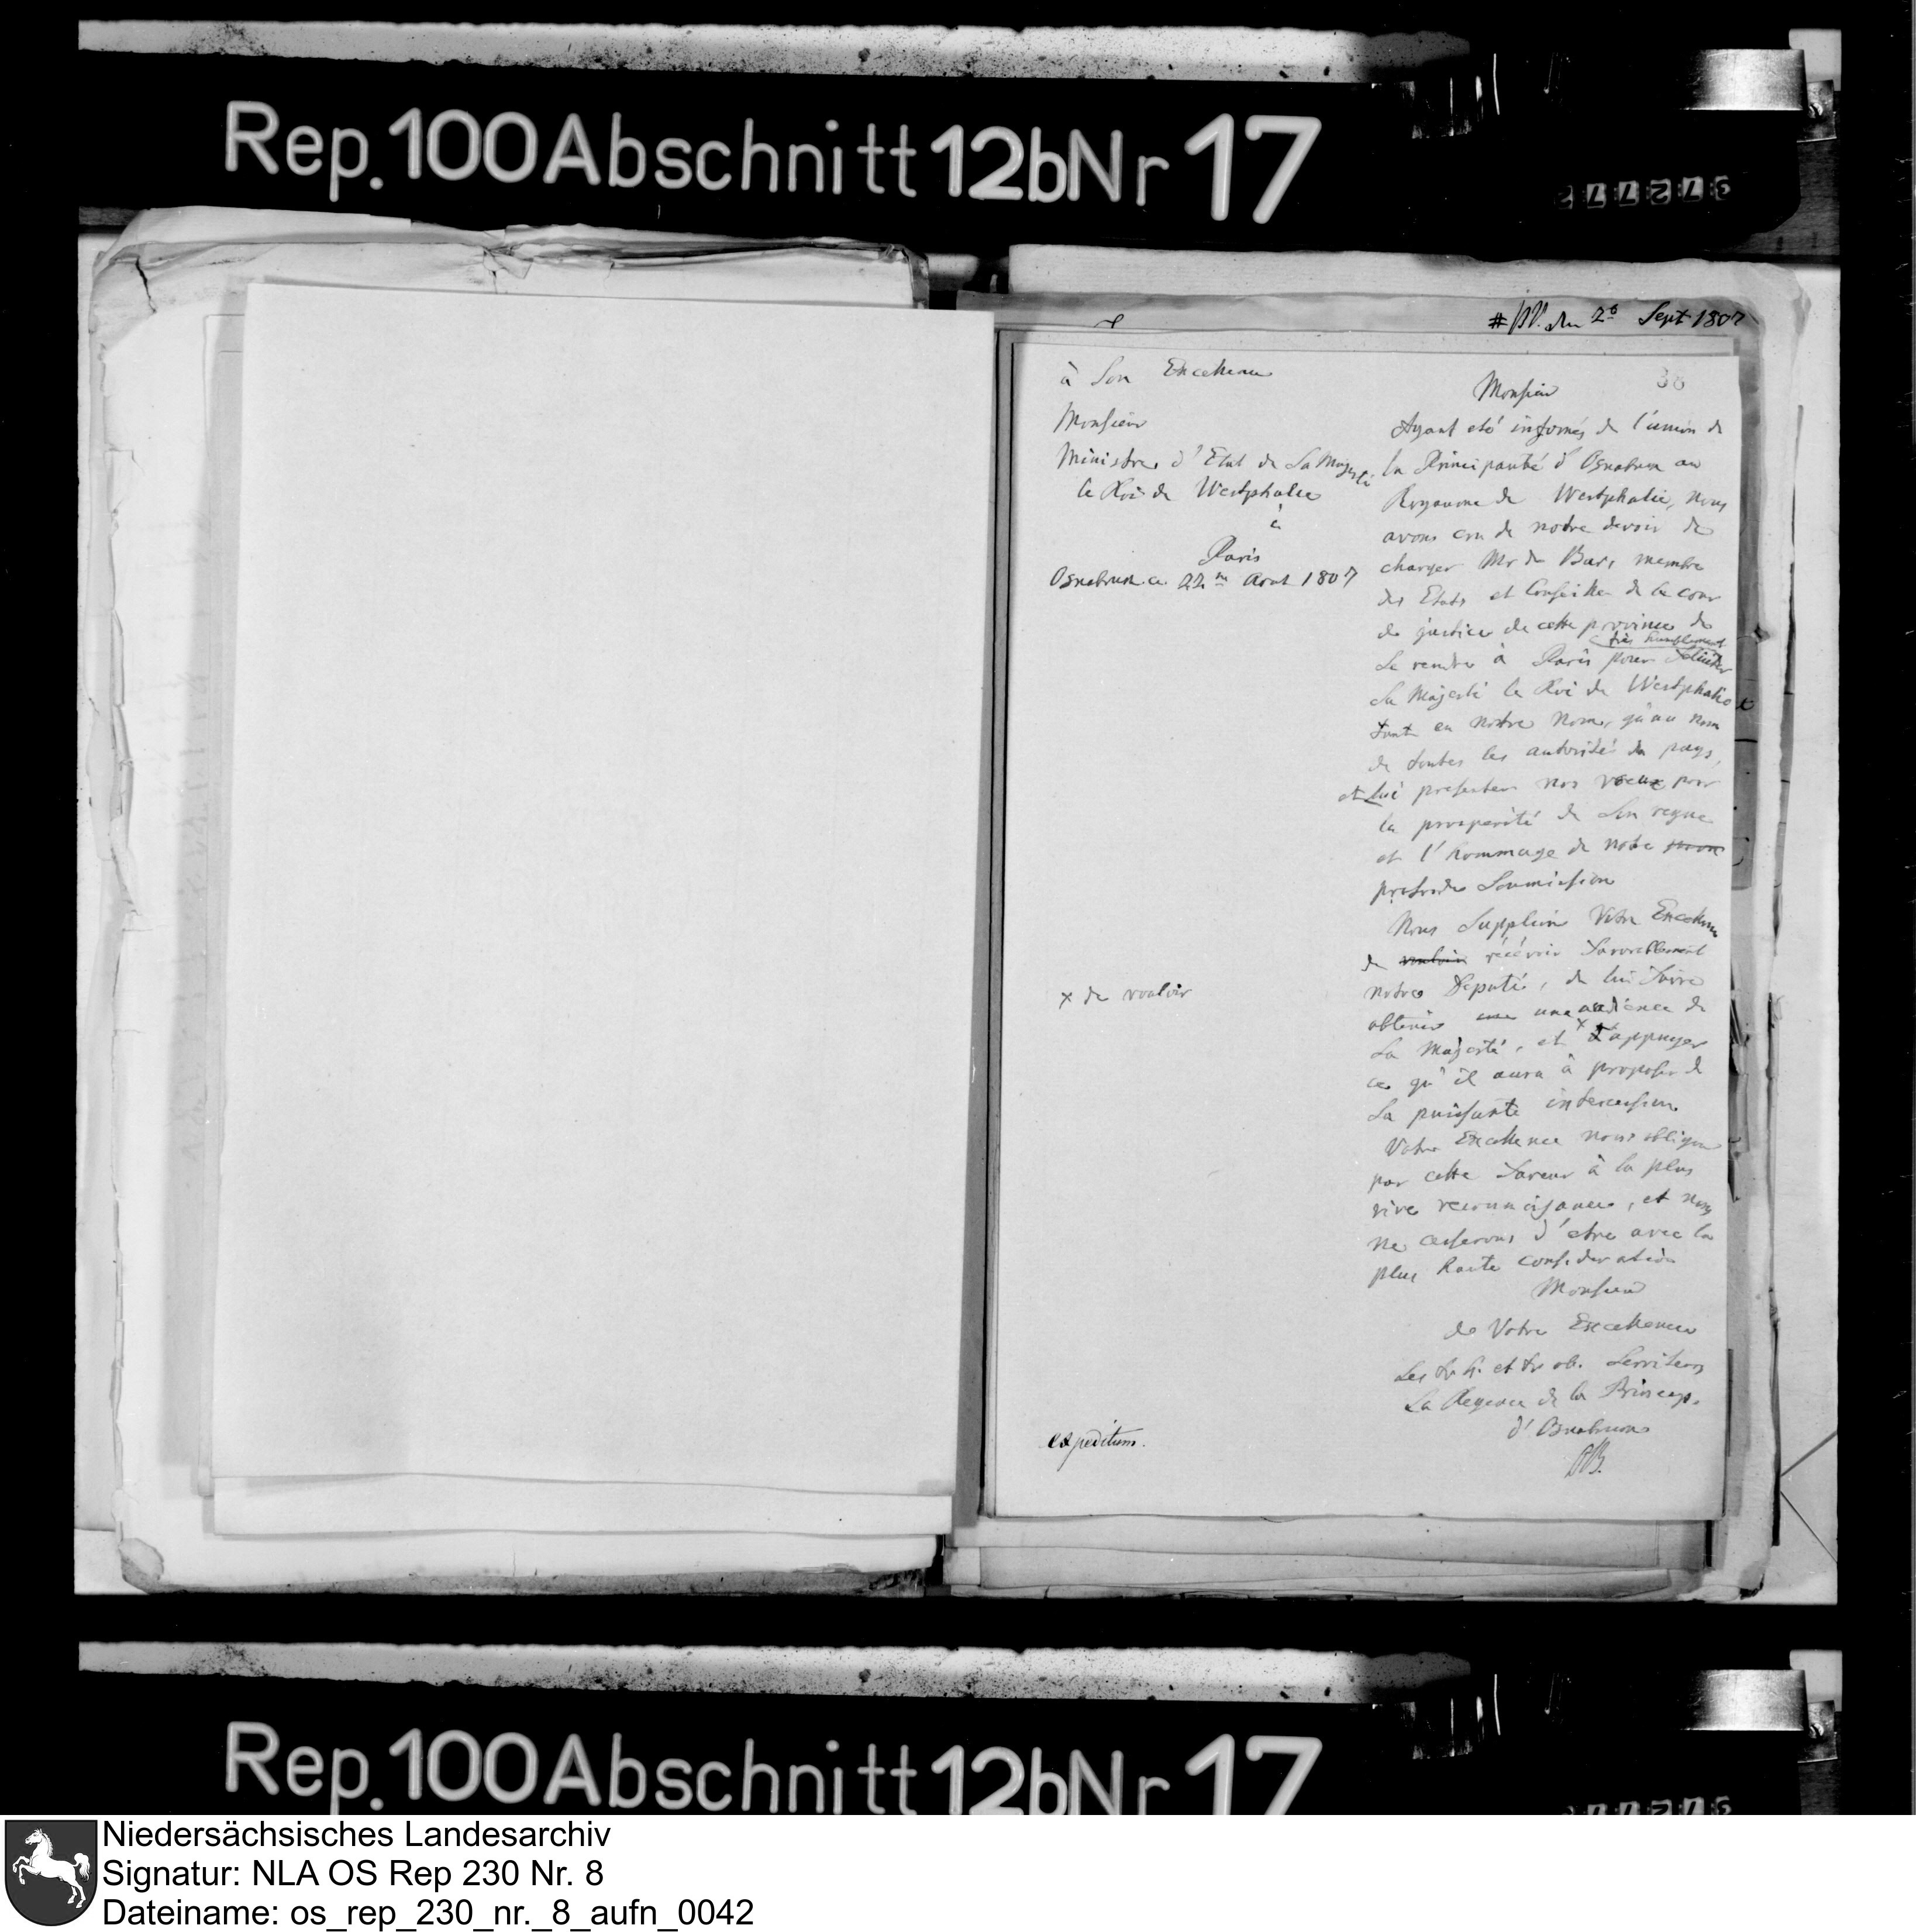 Rep. 100 Abschnitt 12b Nr 17
372772
den 26 Sept 1807
38
à Son Excellence
Monsieur
Ministre d'Etat de Sa Majesté
le Roi de Westphalie
à
Paris
Osnabruck ce 22m Aout 1807
Monsieur
Ayant eté informés de l'union de
la Principauté d'Osnabruc au
Royaume de Westphalie, nous
avons cru de notre devoir de
charger Mr de Bar, membre
des Etats et Conseiller de la cour
de justice de cette province de
très humblement
se rendre à Paris pour feliciter
Sa Majesté le Roi de Westphalie
tant en notre Nom, qu'au nom
de toutes les autorités du pays,
et lui presenter nos voeux pour
la prosperité de Son regne
et l'hommage de notre
profonde Soumission
Nous Supplions Votre Excellence
de vouloir récévoir favorablement
notre Deputé, de lui faire
obtenir une une audience de
Sa Majesté, et x d'appuyer
x de vouloir
ce qu'il aura à proposer de
Sa puissante intercession.
Votre Excellence nous obligera
par cette faveur à la plus
vive reconnoissance, et nous
ne cesserons d'etre avec la
plus haute consideration
Monsieur
de Votre Excellence
Les tr h. et tr ob. Serviteurs
La Regence de la Princip.
d'Osnabruc
expeditum.
Rep. 100 Abschnitt 12b Nr 17
Niedersächsisches Landesarchiv
Signatur: NLA OS Rep 230 Nr. 8
Dateiname: os_rep_230_nr._8_aufn_0042